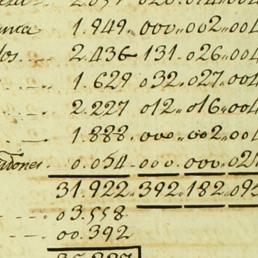 1.949..000..002..004
2.436..131..026..004
1.629..032..027..004
2.227..012..016..004
1.888..000..002..004
0.054..000..000..02
31.922..392..182..09
03.558
00.392